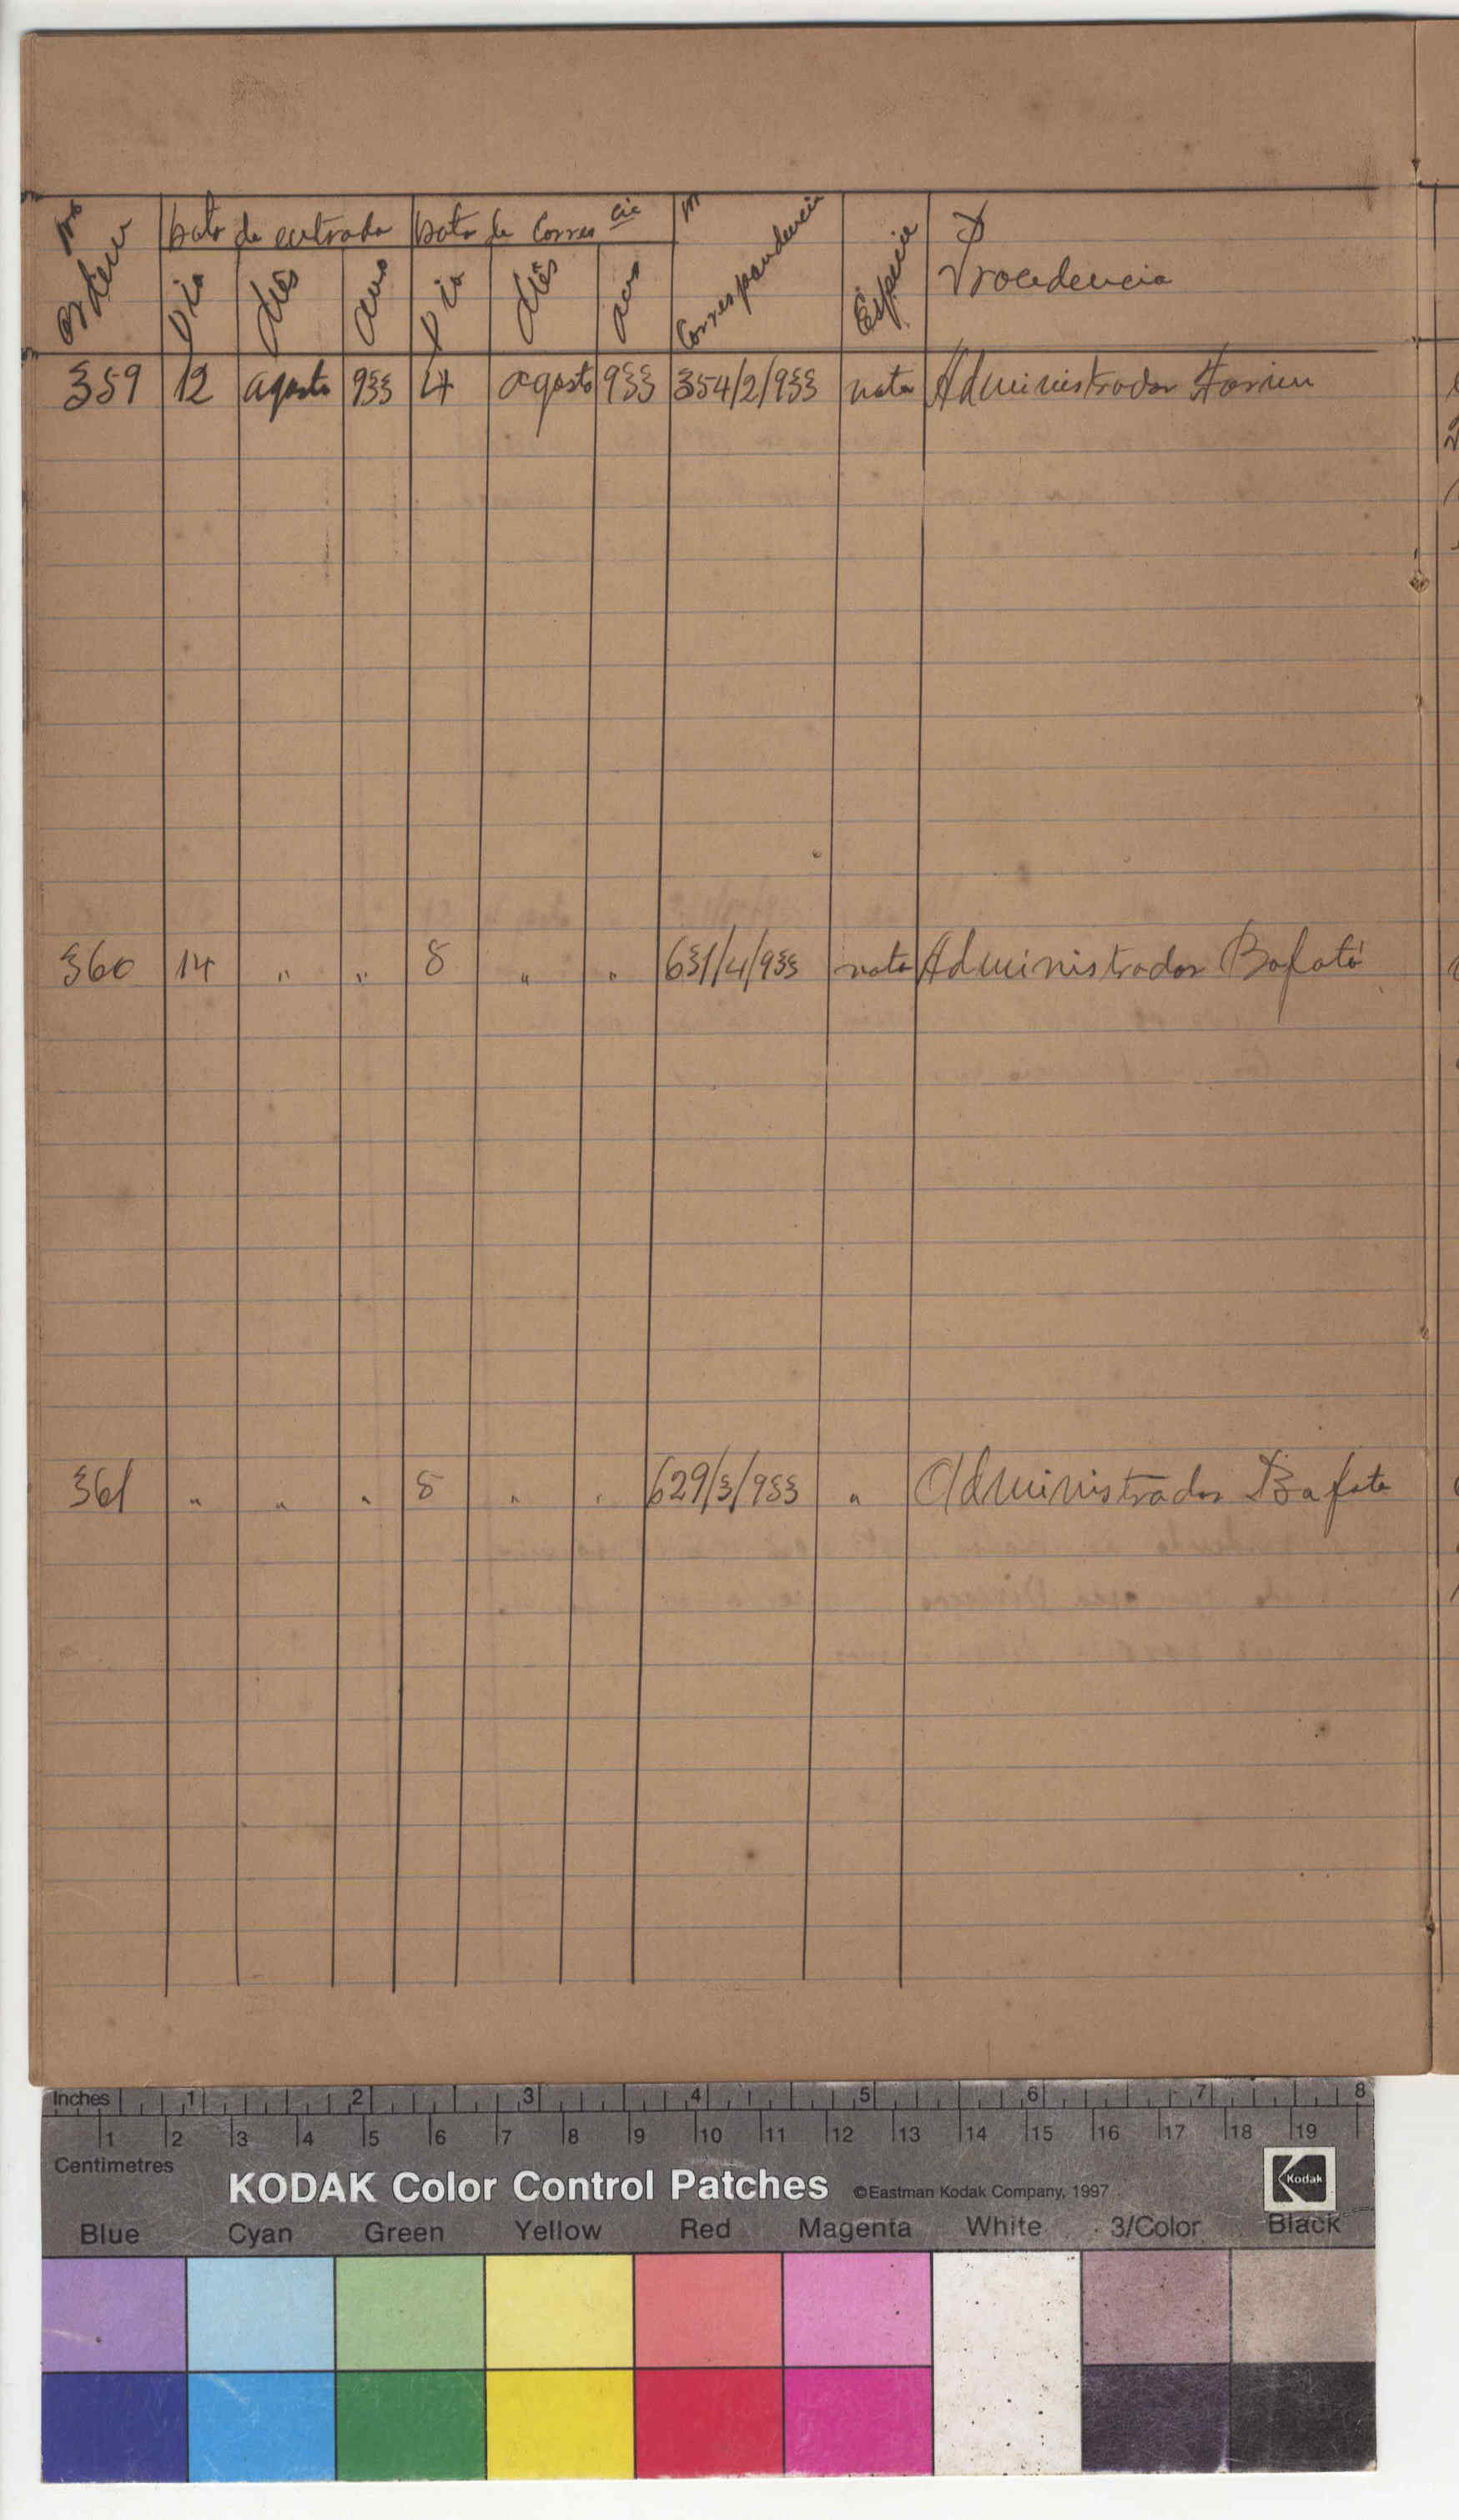 Nº Ordem | Data de entrada | Data de Corres cia | Nº Correspondencia | Espécie | Procedencia
Dia | Mês | Ano | Dia | Mês | Ano
359 | 12 | agosto | 933 | 4 | agosto | 933 | 354/2/933 | nota | Administrador Farim
360 | 14 | " | " | 8 | " | " | 631/4/933 | nota | Administrador Bafatá
361 | " | " | " | 8 | " | " | 629/3/933 | " | Administrador Bafata
Inches 1 2 3 4 5 6 7 8
1 2 3 4 5 6 7 8 9 10 11 12 13 14 15 16 17 18 19
Centimetres
KODAK Color Control Patches ©Eastman Kodak Company, 1997 Kodak
Blue Cyan Green Yellow Red Magenta White 3/Color Black